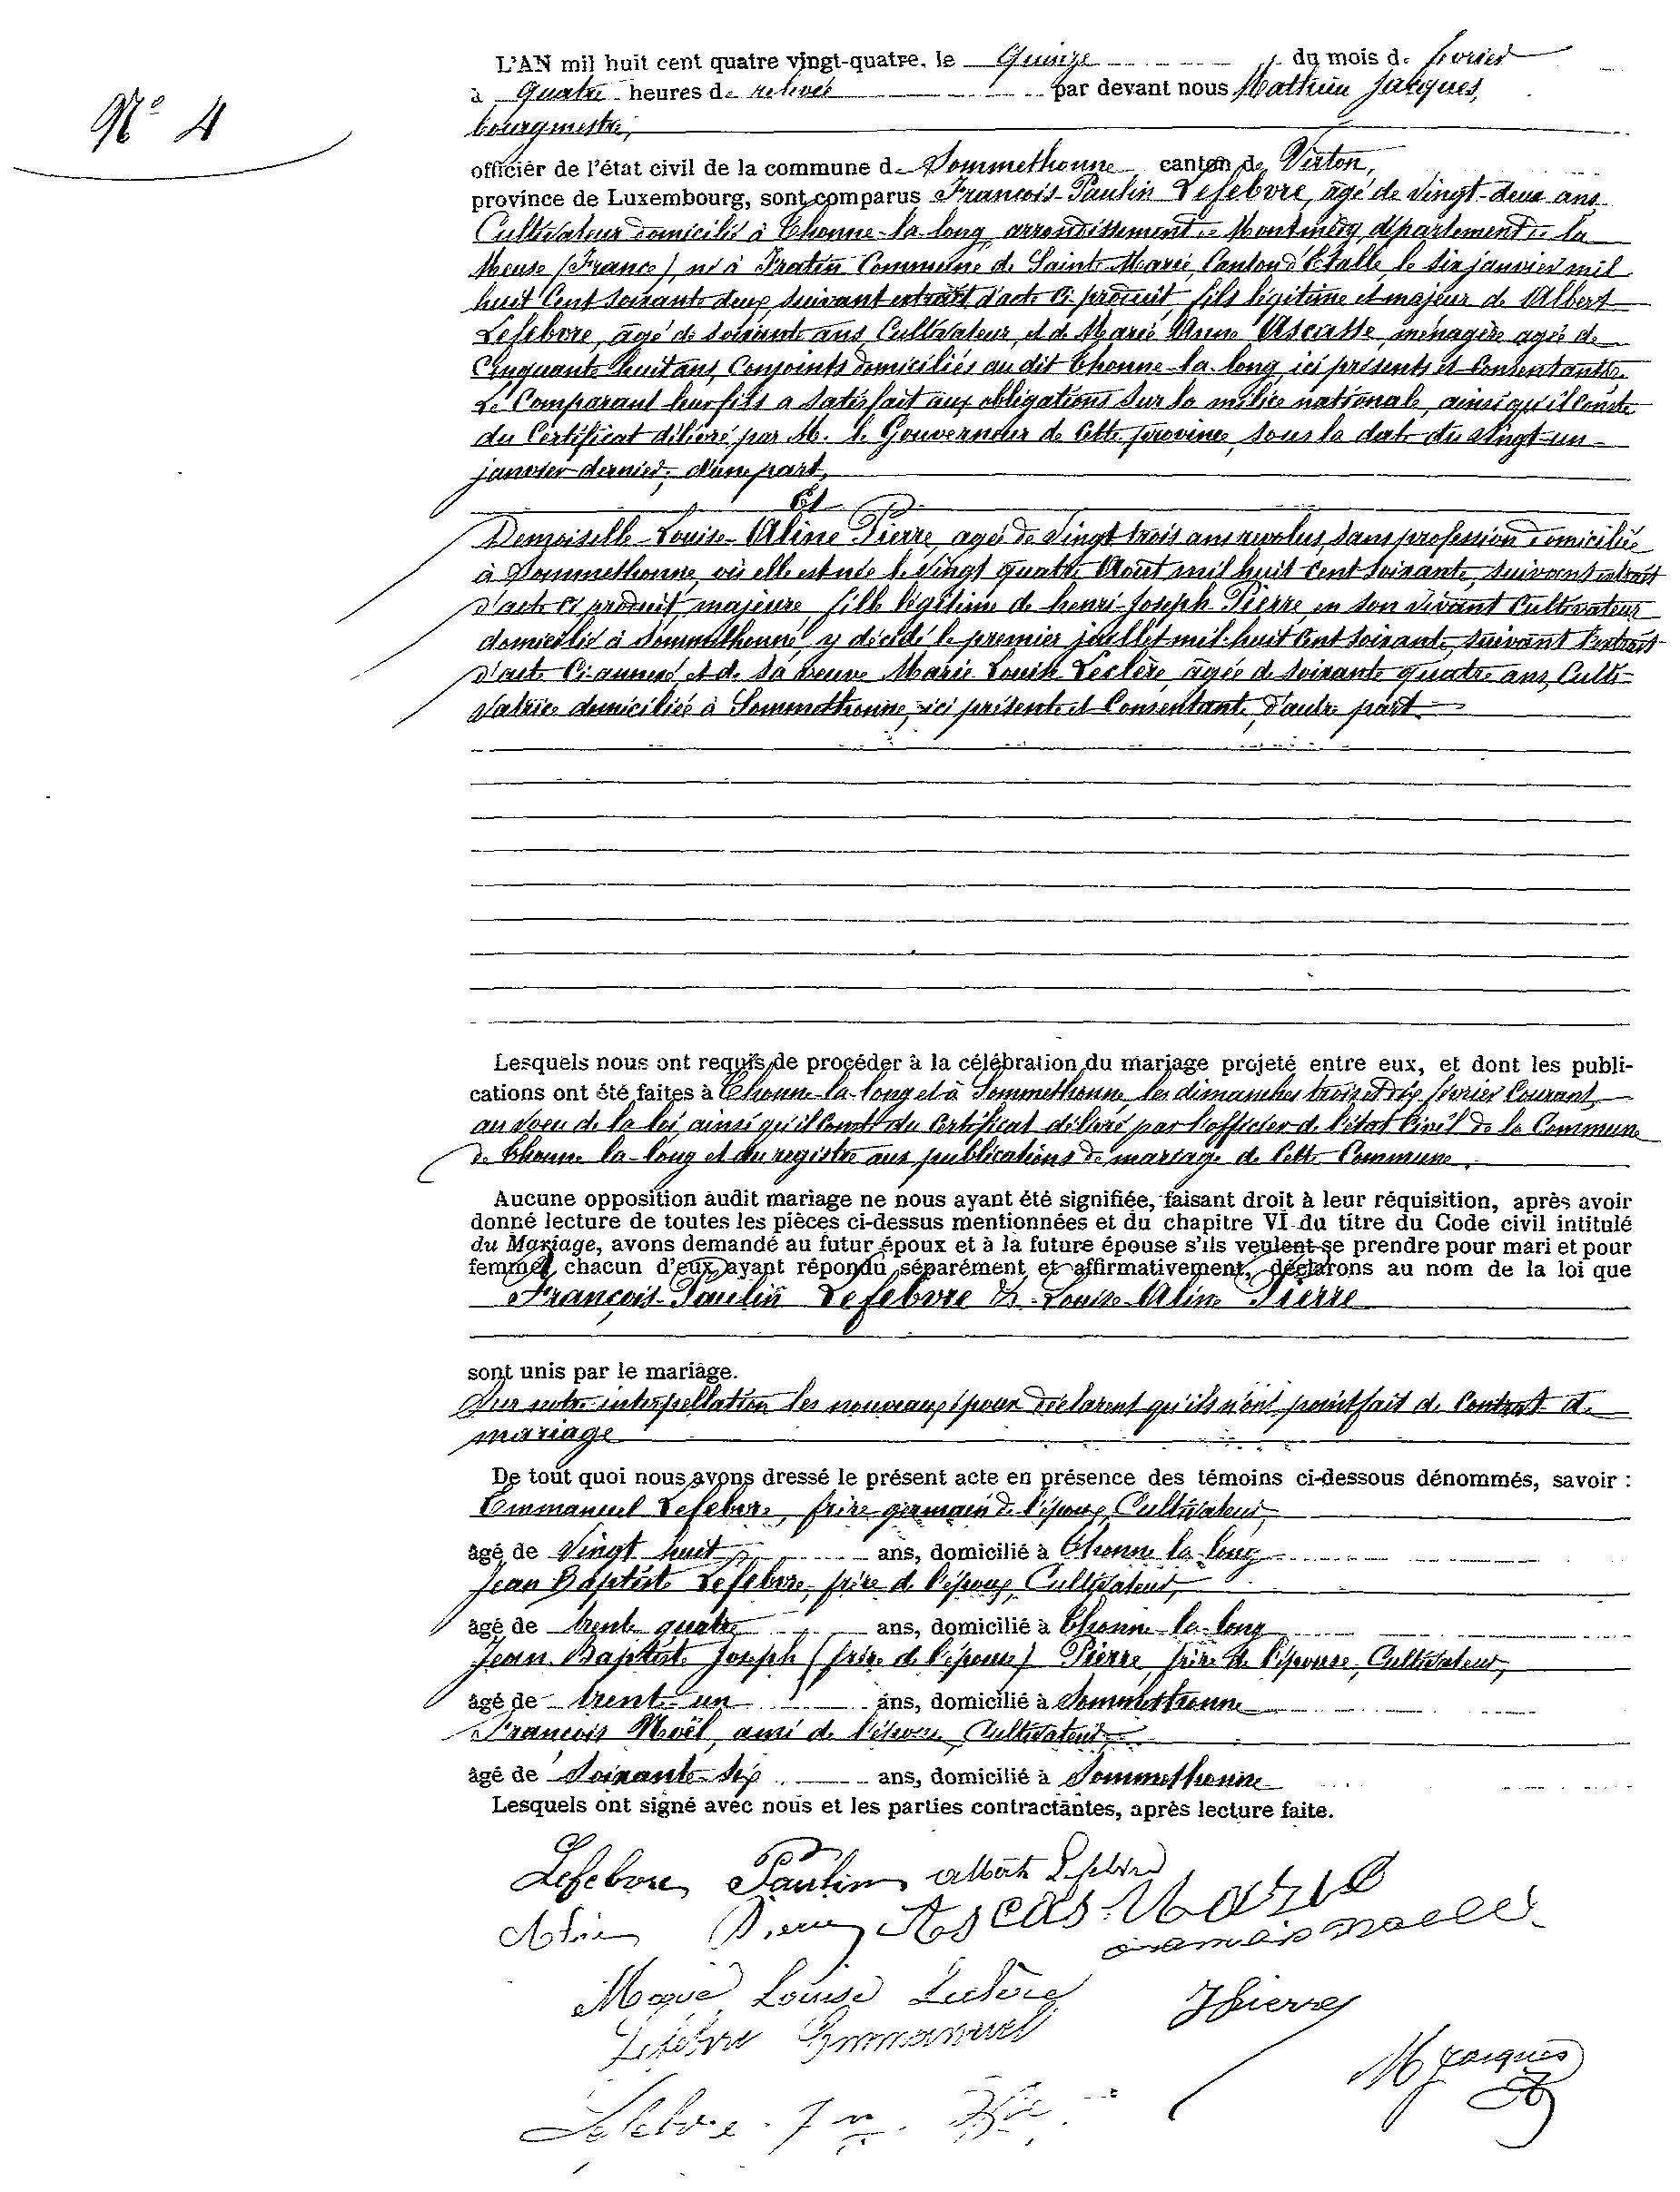 N° 4
L'AN mil huit cent quatre vingt-quatre, le Quinze du mois de février
à quatre heures de relevée par devant nous Mathieu Jacques,
bourgmestre,
officier de l'état civil de la commune de Sommethonne canton de Virton,
province de Luxembourg, sont comparus François-Paulin Lefebvre, âgé de vingt-deux ans
Cultivateur domicilié à Thonne-la-long, arrondissement de Montmédy, département de la
Meuse (France), né à Fratin Commune de Sainte-Marie, Canton d'Etalle le six janvier mil
huit Cent soixante deux, suivant extrait d'acte ci-produit, fils légitime et majeur de Albert
Lefebvre, âgé de soixante ans, Cultivateur, et de Marie Anne Ascasse, ménagère agée de
Cinquante huit ans, Conjoints domiciliés au dit Thonne-la-long, ici présents et Consentants.
Le Comparant leur fils a satisfait aux obligations sur la milice nationale, ainsi qu'il Conste
du Certificat délivré par M. le Gouverneur de Cette province, sous la date du vingt-un
janvier dernier, d'une part,
Et
Demoiselle Louise-Aline Pierre, agée de vingt trois ans revolus, sans profession domiciliée
à Sommethonne, où elle est née le vingt quatre Août mil huit Cent soixante, suivant extrait
d'acte ci produit, majeure, fille légitime de henri-Joseph Pierre, en son vivant Cultivateur
domicilié à Sommethonne, y décédé le premier juillet mil-huit Cent soixante, suivant l'extrait
d'acte Ci-annexé, et de sa veuve Marie Louise Leclère, âgée de soixante quatre ans, Culti-
vatrice domiciliée à Sommethonne, ici présente et Consentante, d'autre part.
Lesquels nous ont requis de procéder à la célébration du mariage projeté entre eux, et dont les publi-
cations ont été faites à Thonne-la-long et à Sommethonne, les dimanches trois et dix février Courant,
au voeu de la loi, ainsi qu'il Conste du Certificat délivré par l'officier de l'état Civil de la Commune
de Thonne-la-long et du registre aux publications de mariage de Cette Commune.
Aucune opposition audit mariage ne nous ayant été signifiée, faisant droit à leur réquisition, après avoir
donné lecture de toutes les pièces ci-dessus mentionnées et du chapitre VI du titre du Code civil intitulé
du Mariage, avons demandé au futur époux et à la future épouse s'ils veulent se prendre pour mari et pour
femme, chacun d'eux ayant répondu séparément et affirmativement, déclarons au nom de la loi que
François-Paulin Lefebvre & Louise-Aline Pierre
sont unis par le mariage.
Sur notre interpellation les nouveaux époux déclarent qu'ils n'ont point fait de Contrat de
mariage
De tout quoi nous avons dressé le présent acte en présence des témoins ci-dessous dénommés, savoir :
Emmanuel Lefebvre, frère germain de l'époux, Cultivateur,
âgé de vingt huit ans, domicilié à Thonne la-long
Jean Baptiste Lefebvre, frère de l'époux, Cultivateur,
âgé de trente quatre ans, domicilié à Thonne-la-long
Jean Baptiste Joseph (frère de l'épouse) Pierre, frère de l'épouse, Cultivateur,
âgé de trente-un ans, domicilié à Sommethonne
François Noël, ami de l'époux, Cultivateur,
âgé de soixante-six ans, domicilié à Sommethonne
Lesquels ont signé avec nous et les parties contractantes, après lecture faite.
Lefebvre Paulin albert Lefebvre
Aline Pierre Ascas Marie
francois noell
Marie Louise Leclère JPierre
Lefebvre Emmanuel
M Jacques
Lefebvre Jn Bte